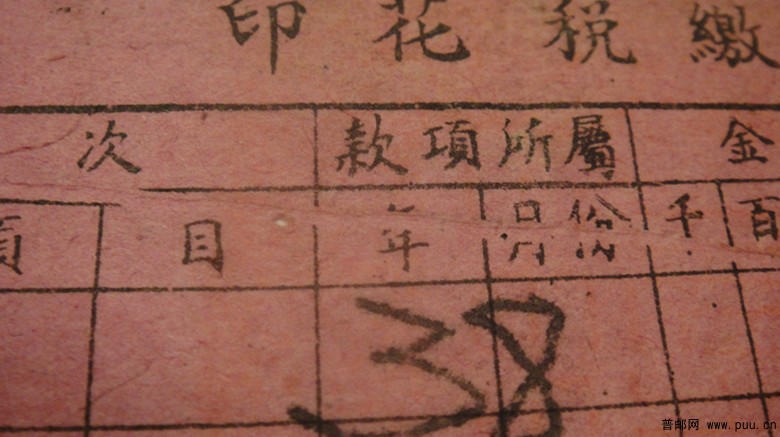 印花税繳
次 款項所屬 金
頁 目 年 月份 千 百
38
普邮网 www.puu.cn